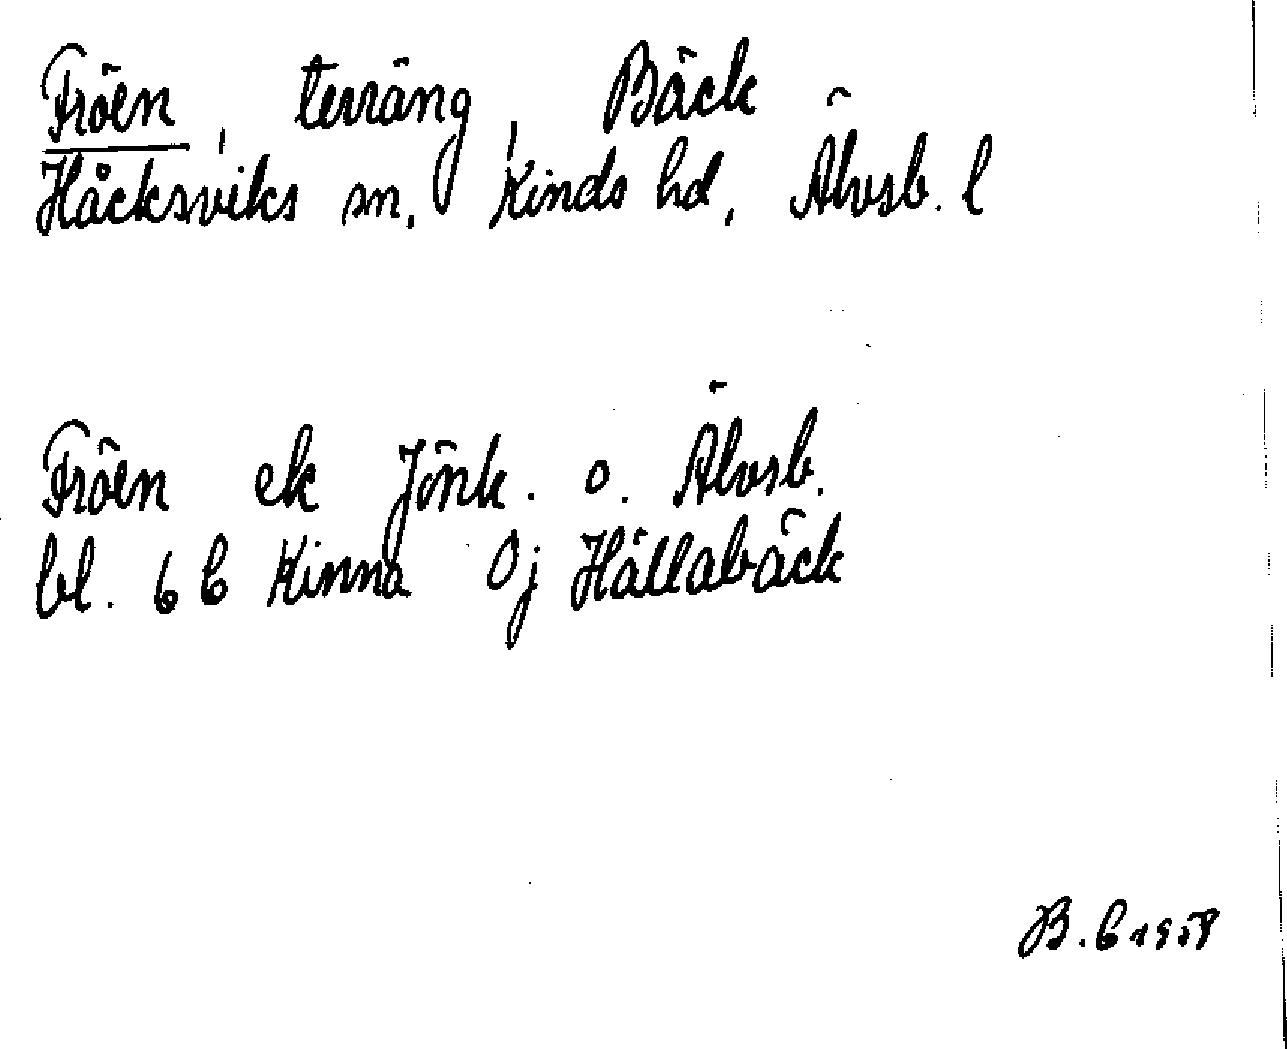 Fröen, terräng, Bäck
Håcksviks sn, Kinds hd, Älvsb. l
Fröen ek Jönk. o. Älvsb.
bl. 6 C Kinna Öj Hällabäck
B. C 1958